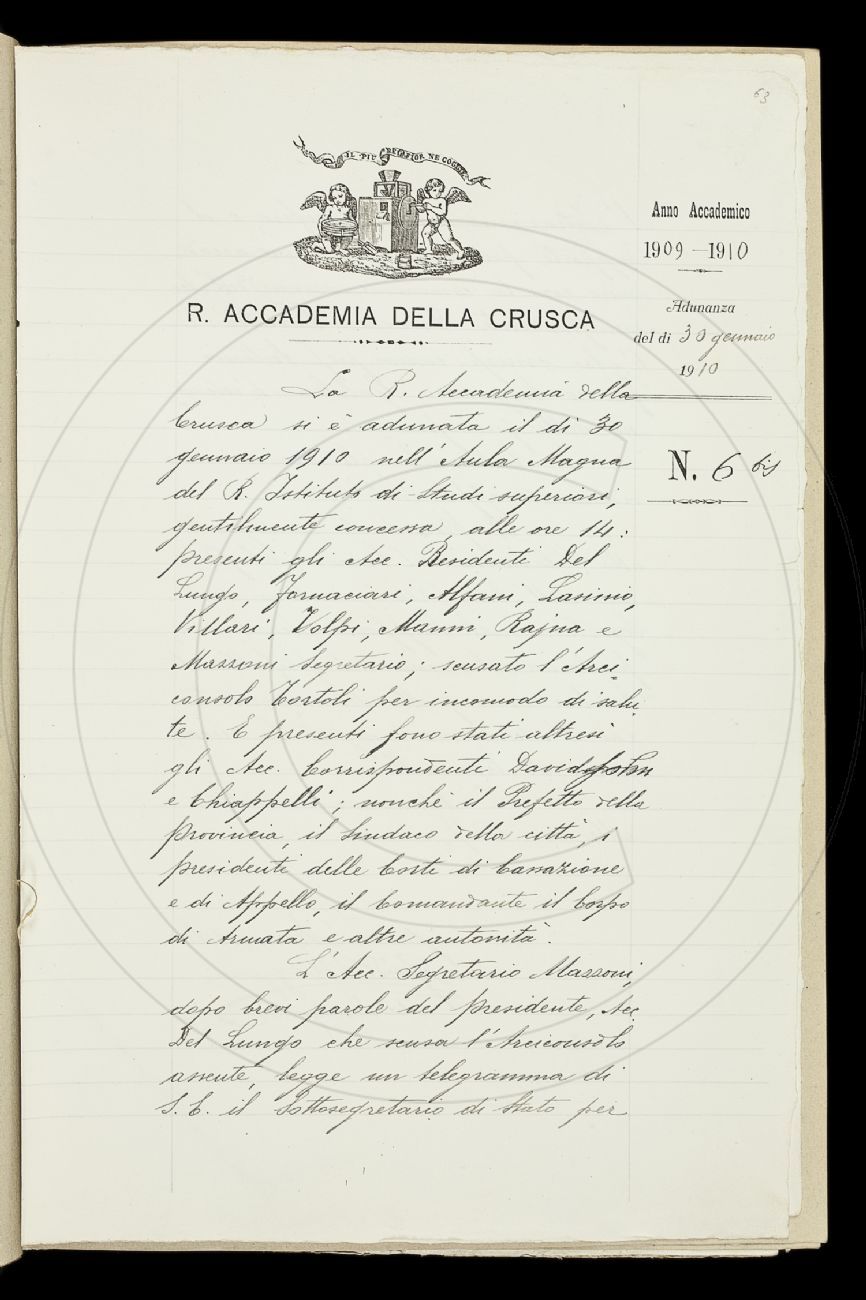 63
IL PIÙ BEL FIOR NE COGLIE
Anno Accademico
1909-1910
R. ACCADEMIA DELLA CRUSCA
Adunanza
del dì 30 gennaio
1910
N. 6 bis
La R. Accademia della
Crusca si è adunata il dì 30
gennaio 1910 nell'Aula Magna
del R. Istituto di Studi superiori,
gentilmente concessa, alle ore 14:
presenti gli Acc. Residenti Del
Lungo, Fornaciari, Alfani, Lasinio,
Villari, Volpi, Manni, Rajna e
Mazzoni Segretario; scusato l'Arci-
consolo Tortoli per incomodo di salu-
te. E presenti sono stati altresì
gli Acc. Corrispondenti Davidsohn
e Chiappelli; nonchè il Prefetto della
Provincia, il Sindaco della città, i
presidenti delle Corti di Cassazione
e di Appello, il Comandante il Corpo
di Armata e altre autorità.
L'Acc. Segretario Mazzoni,
dopo brevi parole del presidente, Acc.
Del Lungo che scusa l'Arciconsolo
assente, legge un telegramma di
S. E. il Sottosegretario di Stato per